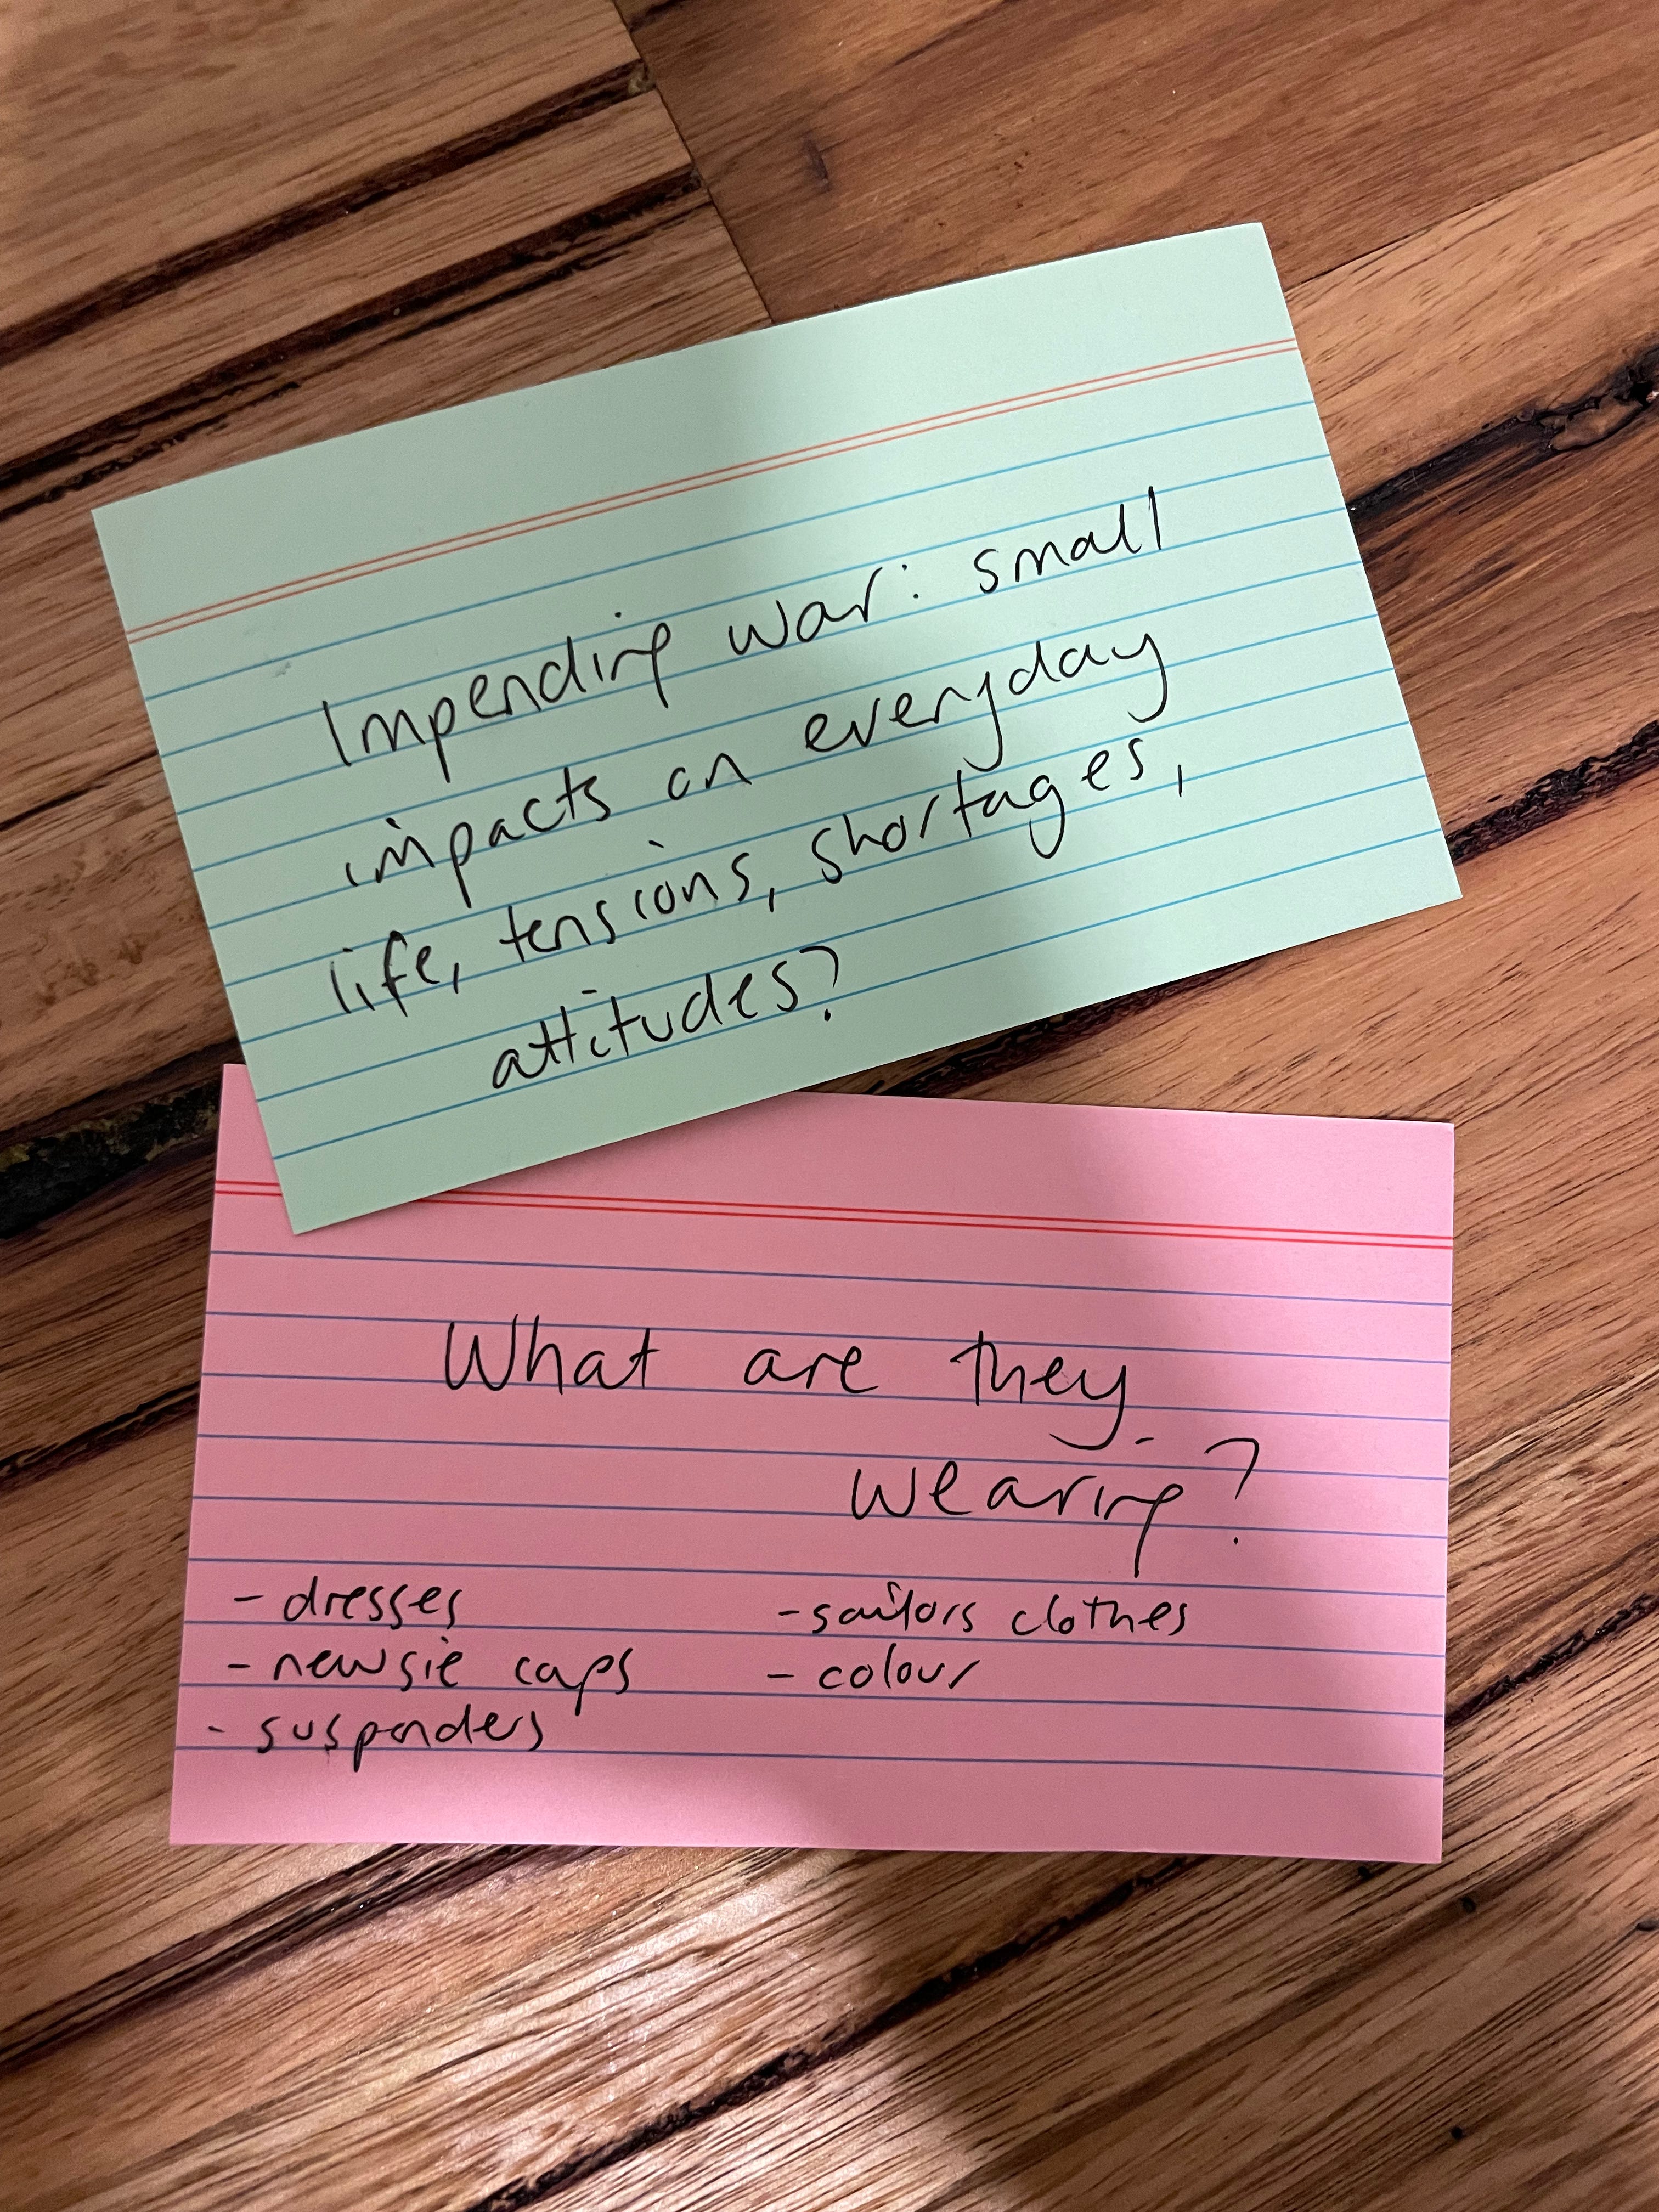 Impending war: small
impacts on everyday
life, tensions, shortages,
attitudes?
What are they
wearing?
- dresses
- newsie caps
- suspenders
- sailors clothes
- colour